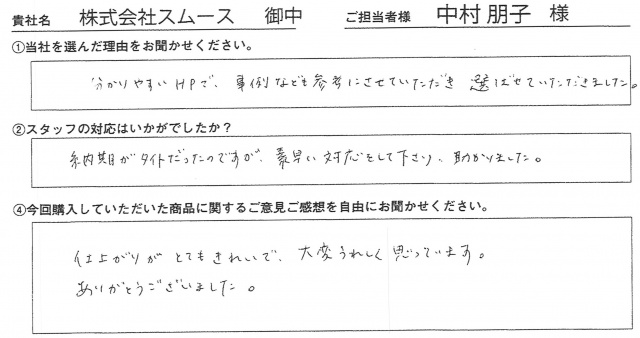 貴社名 株式会社スムース 御中 ご担当者様 中村 朋子 様
①当社を選んだ理由をお聞かせください。
分かりやすいHPで、事例なども参考にさせていただき 選ばせていただきました。
②スタッフの対応はいかがでしたか？
納期がタイトだったのですが、素早い対応をして下さり、助かりました。
④今回購入していただいた商品に関するご意見ご感想を自由にお聞かせください。
仕上がりが とてもきれいで、大変うれしく思っています。
ありがとうございました。